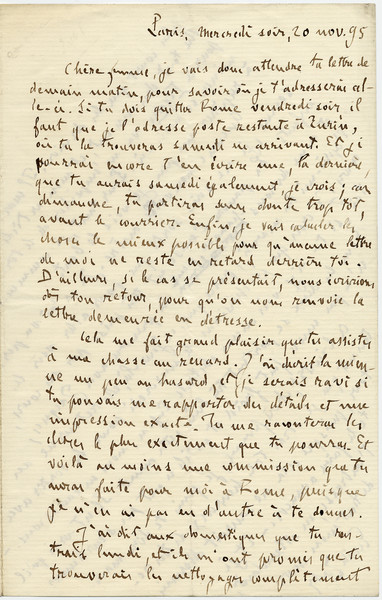 Paris. Mercredi soir, 20 nov. 95
Chère femme, je vais donc attendre ta lettre de
demain matin, pour savoir où je t'adresserai cel-
le-ci. Si tu dois quitter Rome vendredi soir il
faut que je l'adresse poste restante à Turin,
où tu la trouveras samedi en arrivant. Et je
pourrai encore t'en écrire une, la dernière,
que tu aurais samedi également, je crois ; car
dimanche, tu partiras sans doute trop tôt,
avant le courrier. Enfin, je vais calculer les
choses le mieux possible pour qu'aucune lettre
de moi ne reste en retard derrière toi.
D'ailleurs, si le cas se présentait, nous écririons
dès ton retour, pour qu'on nous renvoie la
lettre demeurée en détresse.
Cela me fait grand plaisir que tu assistes
à une chasse au renard. J'ai décrit la mien-
ne un peu au hasard, et je serais ravi si
tu pouvais me rapporter des détails et une
impression exacte. Tu me raconteras les
choses le plus exactement que tu pourras. Et
voilà au moins une commission que tu
auras faite pour moi à Rome, puisque
je n'en ai pas eu d'autre à te donner.
J'ai dit aux domestiques que tu ren-
trais lundi, et ils m'ont promis que tu
trouverais les nettoyages complètement